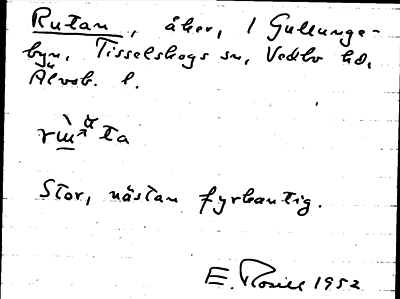 Rutan, åker, 1 Gullunge-
byn, Tisselskogs sn, Vedbo hd,
Älvsb. l.
ta
Stor, nästan fyrkantig.
E. Rosell 1952